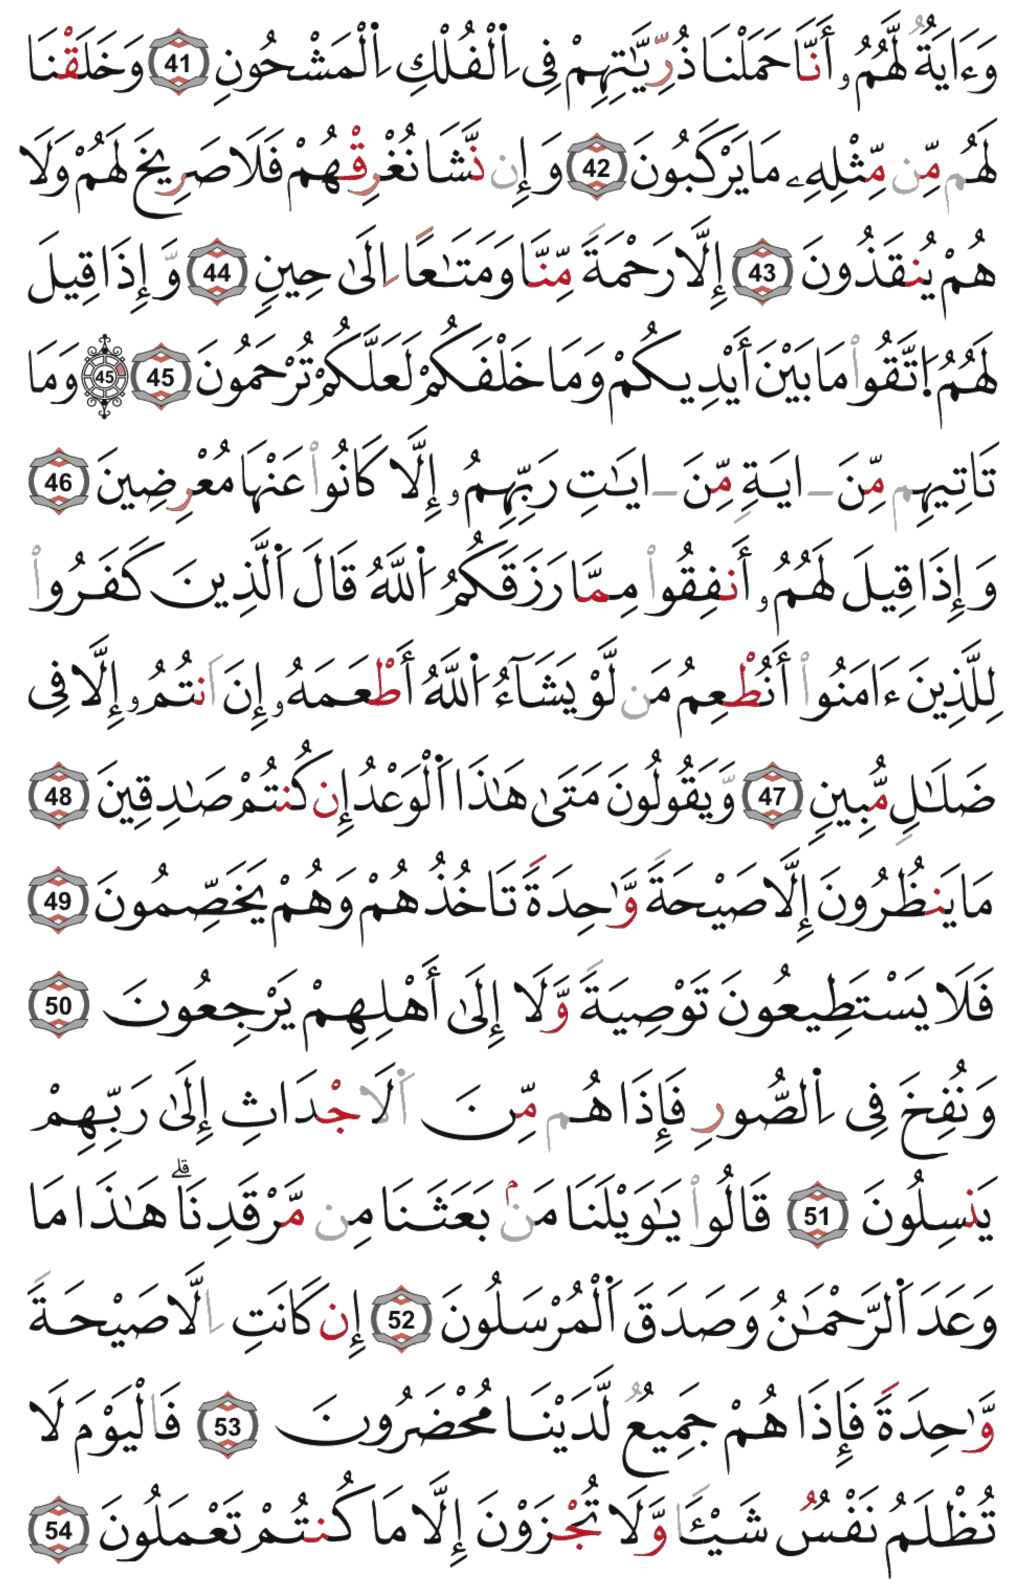 وَءَايَةٌ لَّهُمُۥ أَنَّا حَمَلْنَا ذُرِّيَّٰتِهِمْ فِى اِ۬لْفُلْكِ اِ۬لْمَشْحُونِ 41 وَخَلَقْنَا
لَهُم مِّن مِّثْلِهِۦ مَا يَرْكَبُونَ 42 وَإِن نَّشَا نُغْرِقْهُمْ فَلَا صَرِيخَ لَهُمْ وَلَا
هُمْ يُنقَذُونَ 43 إِلَّا رَحْمَةً مِّنَّا وَمَتَٰعاً اِلَىٰ حِينٍ 44 وَّإِذَا قِيلَ
لَهُمُ اُ۪تَّقُوا۟ مَا بَيْنَ أَيْدِيكُمْ وَمَا خَلْفَكُمْ لَعَلَّكُمْ تُرْحَمُونَ 45 45 وَمَا
تَاتِيهِم مِّنَ ـ ايَةٍ مِّنَ ـ ايَٰتِ رَبِّهِمُۥ إِلَّا كَانُوا۟ عَنْهَا مُعْرِضِينَ 46
وَإِذَا قِيلَ لَهُمُۥ أَنفِقُوا۟ مِمَّا رَزَقَكُمُ اُ۬للَّهُ قَالَ اَ۬لَّذِينَ كَفَرُوا۟
لِلَّذِينَ ءَامَنُوا۟ أَنُطْعِمُ مَن لَّوْ يَشَآءُ اُ۬للَّهُ أَطْعَمَهُۥ إِنَ اَنتُمُۥ إِلَّا فِى
ضَلَٰلٍ مُّبِينٍ 47 وَّيَقُولُونَ مَتَىٰ هَٰذَا اَ۬لْوَعْدُ إِن كُنتُمْ صَٰدِقِينَ 48
مَا يَنظُرُونَ إِلَّا صَيْحَةً وَّٰحِدَةً تَاخُذُهُمْ وَهُمْ يَخَصِّمُونَ 49
فَلَا يَسْتَطِيعُونَ تَوْصِيَةً وَّلَا إِلَىٰ أَهْلِهِمْ يَرْجِعُونَ 50
وَنُفِخَ فِى اِ۬لصُّورِ فَإِذَا هُم مِّنَ اَ۬لَاجْدَاثِ إِلَىٰ رَبِّهِمْ
يَنسِلُونَ 51 قَالُوا۟ يَٰوَيْلَنَا مَنۢ بَعَثَنَا مِن مَّرْقَدِنَاۗ هَٰذَا مَا
وَعَدَ اَ۬لرَّحْمَٰنُ وَصَدَقَ اَ۬لْمُرْسَلُونَ 52 إِن كَانَتِ اِلَّا صَيْحَةً
وَّٰحِدَةً فَإِذَا هُمْ جَمِيعٌ لَّدَيْنَا مُحْضَرُونَ 53 فَالْيَوْمَ لَا
تُظْلَمُ نَفْسٌ شَيْـًٔا وَّلَا تُجْزَوْنَ إِلَّا مَا كُنتُمْ تَعْمَلُونَ 54